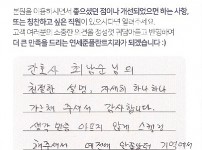 본원을 이용하시면서 좋으셨던 점이나 개선되었으면 하는 사항,
또는 칭찬하고 싶은 직원이 있으시다면 알려주세요.
고객 여러분의 소중한 의견을 진료에 적극 반영하여
더 큰 만족을 드리는 연세준플란트치과가 되겠습니다 :)
간호사 최남순님의
친절한 설명, 자세히 하나하나
가르쳐 주셔서 감사합니다.
생각보다 아프지 않게 스케일
해주셔서 예전에 안좋았던 기억이